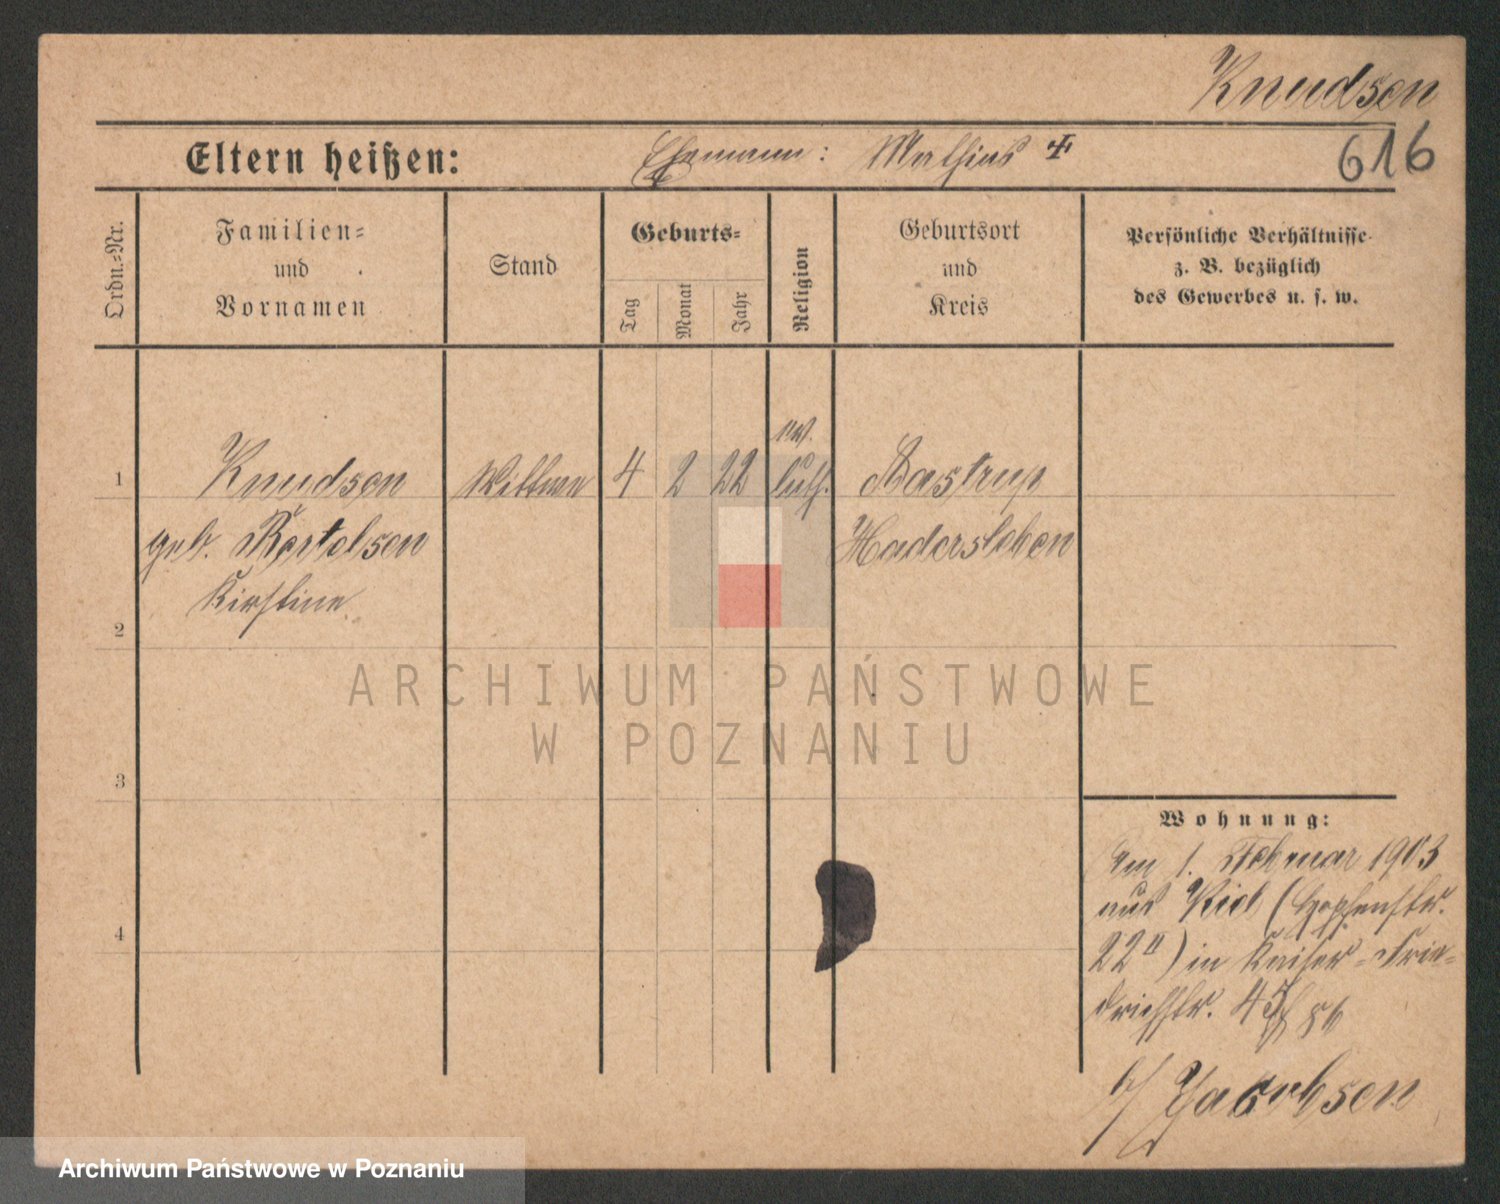 Knudsen
616
Eltern heißen: Ehemann: Mathias ✝
Ordn.-Nr.
Familien-
und
Vornamen
Stand
Geburts-
Tag
Monat
Jahr
Religion
Geburtsort
und
Kreis
Persönliche Verhältnisse
z. B. bezüglich
des Gewerbes u. s. w.
1 Knudsen Wittwe 4 2 22 ev. luth. Aastrup
geb. Bertelsen Hadersleben
Kirstine
2
ARCHIWUM PAŃSTWOWE
W POZNANIU
3
4
Wohnung:
Am 1. Februar 1903
aus Kiel (Hopfenstr.
22 II) in Kaiser-Frie-
drichstr. 45
b/ Jacobsen
Archiwum Państwowe w Poznaniu